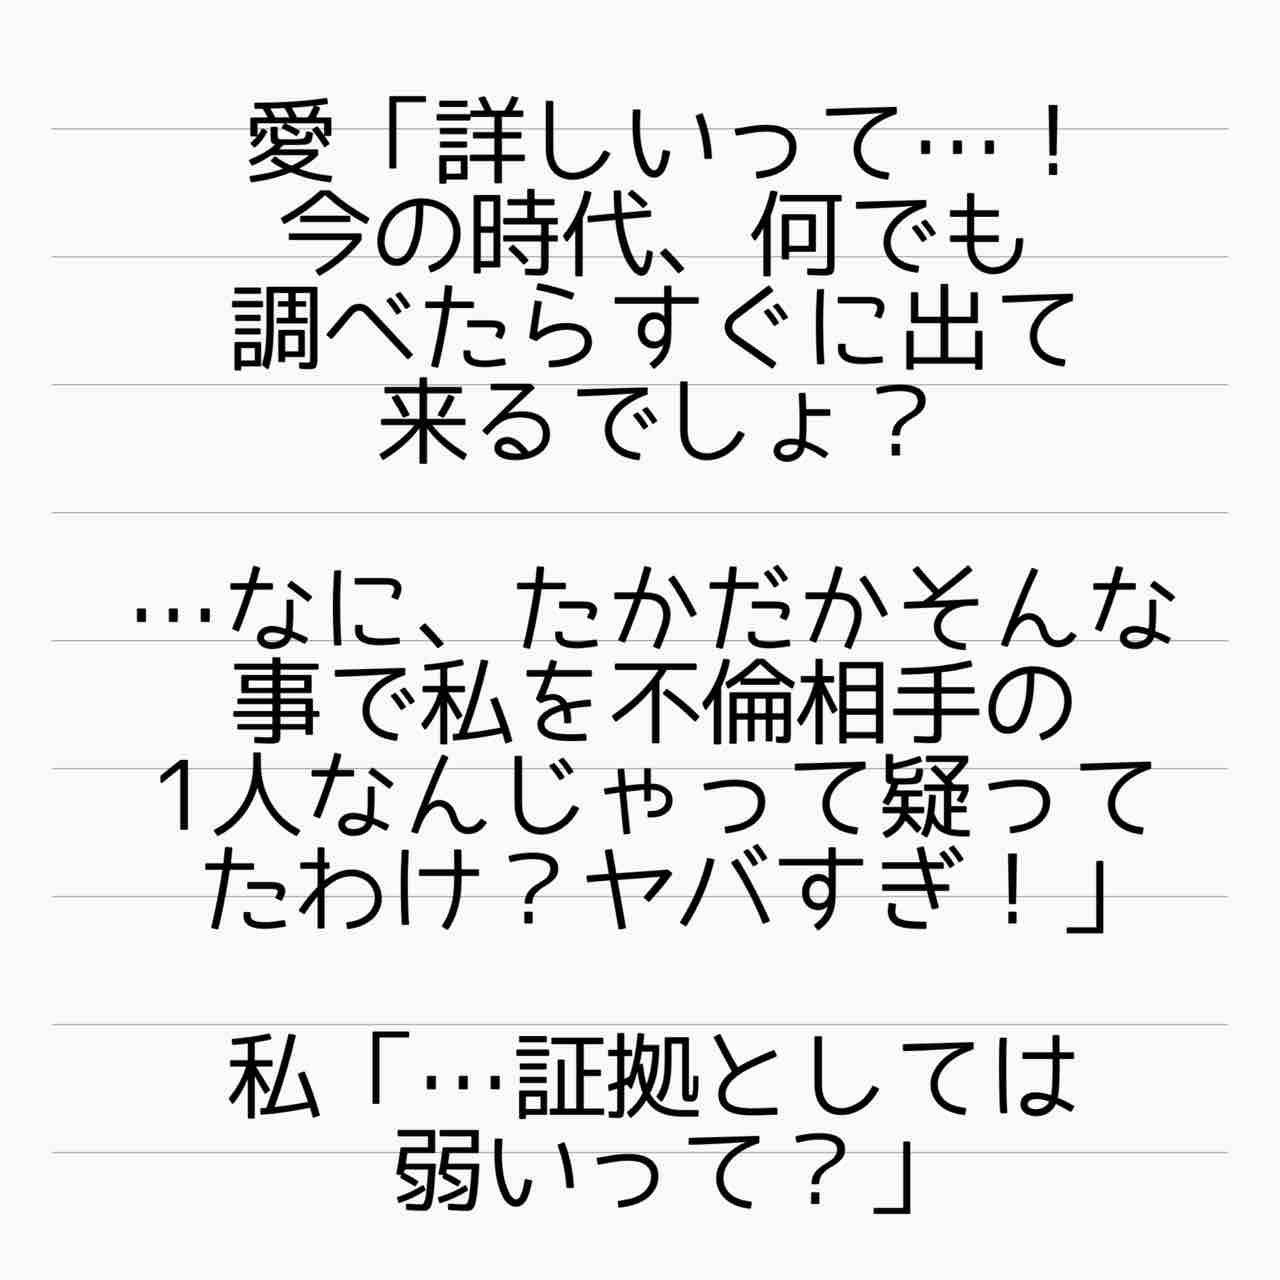 愛「詳しいって…！
今の時代、何でも
調べたらすぐに出て
来るでしょ？
…なに、たかだかそんな
事で私を不倫相手の
1人なんじゃって疑って
たわけ？ヤバすぎ！」
私「…証拠としては
弱いって？」